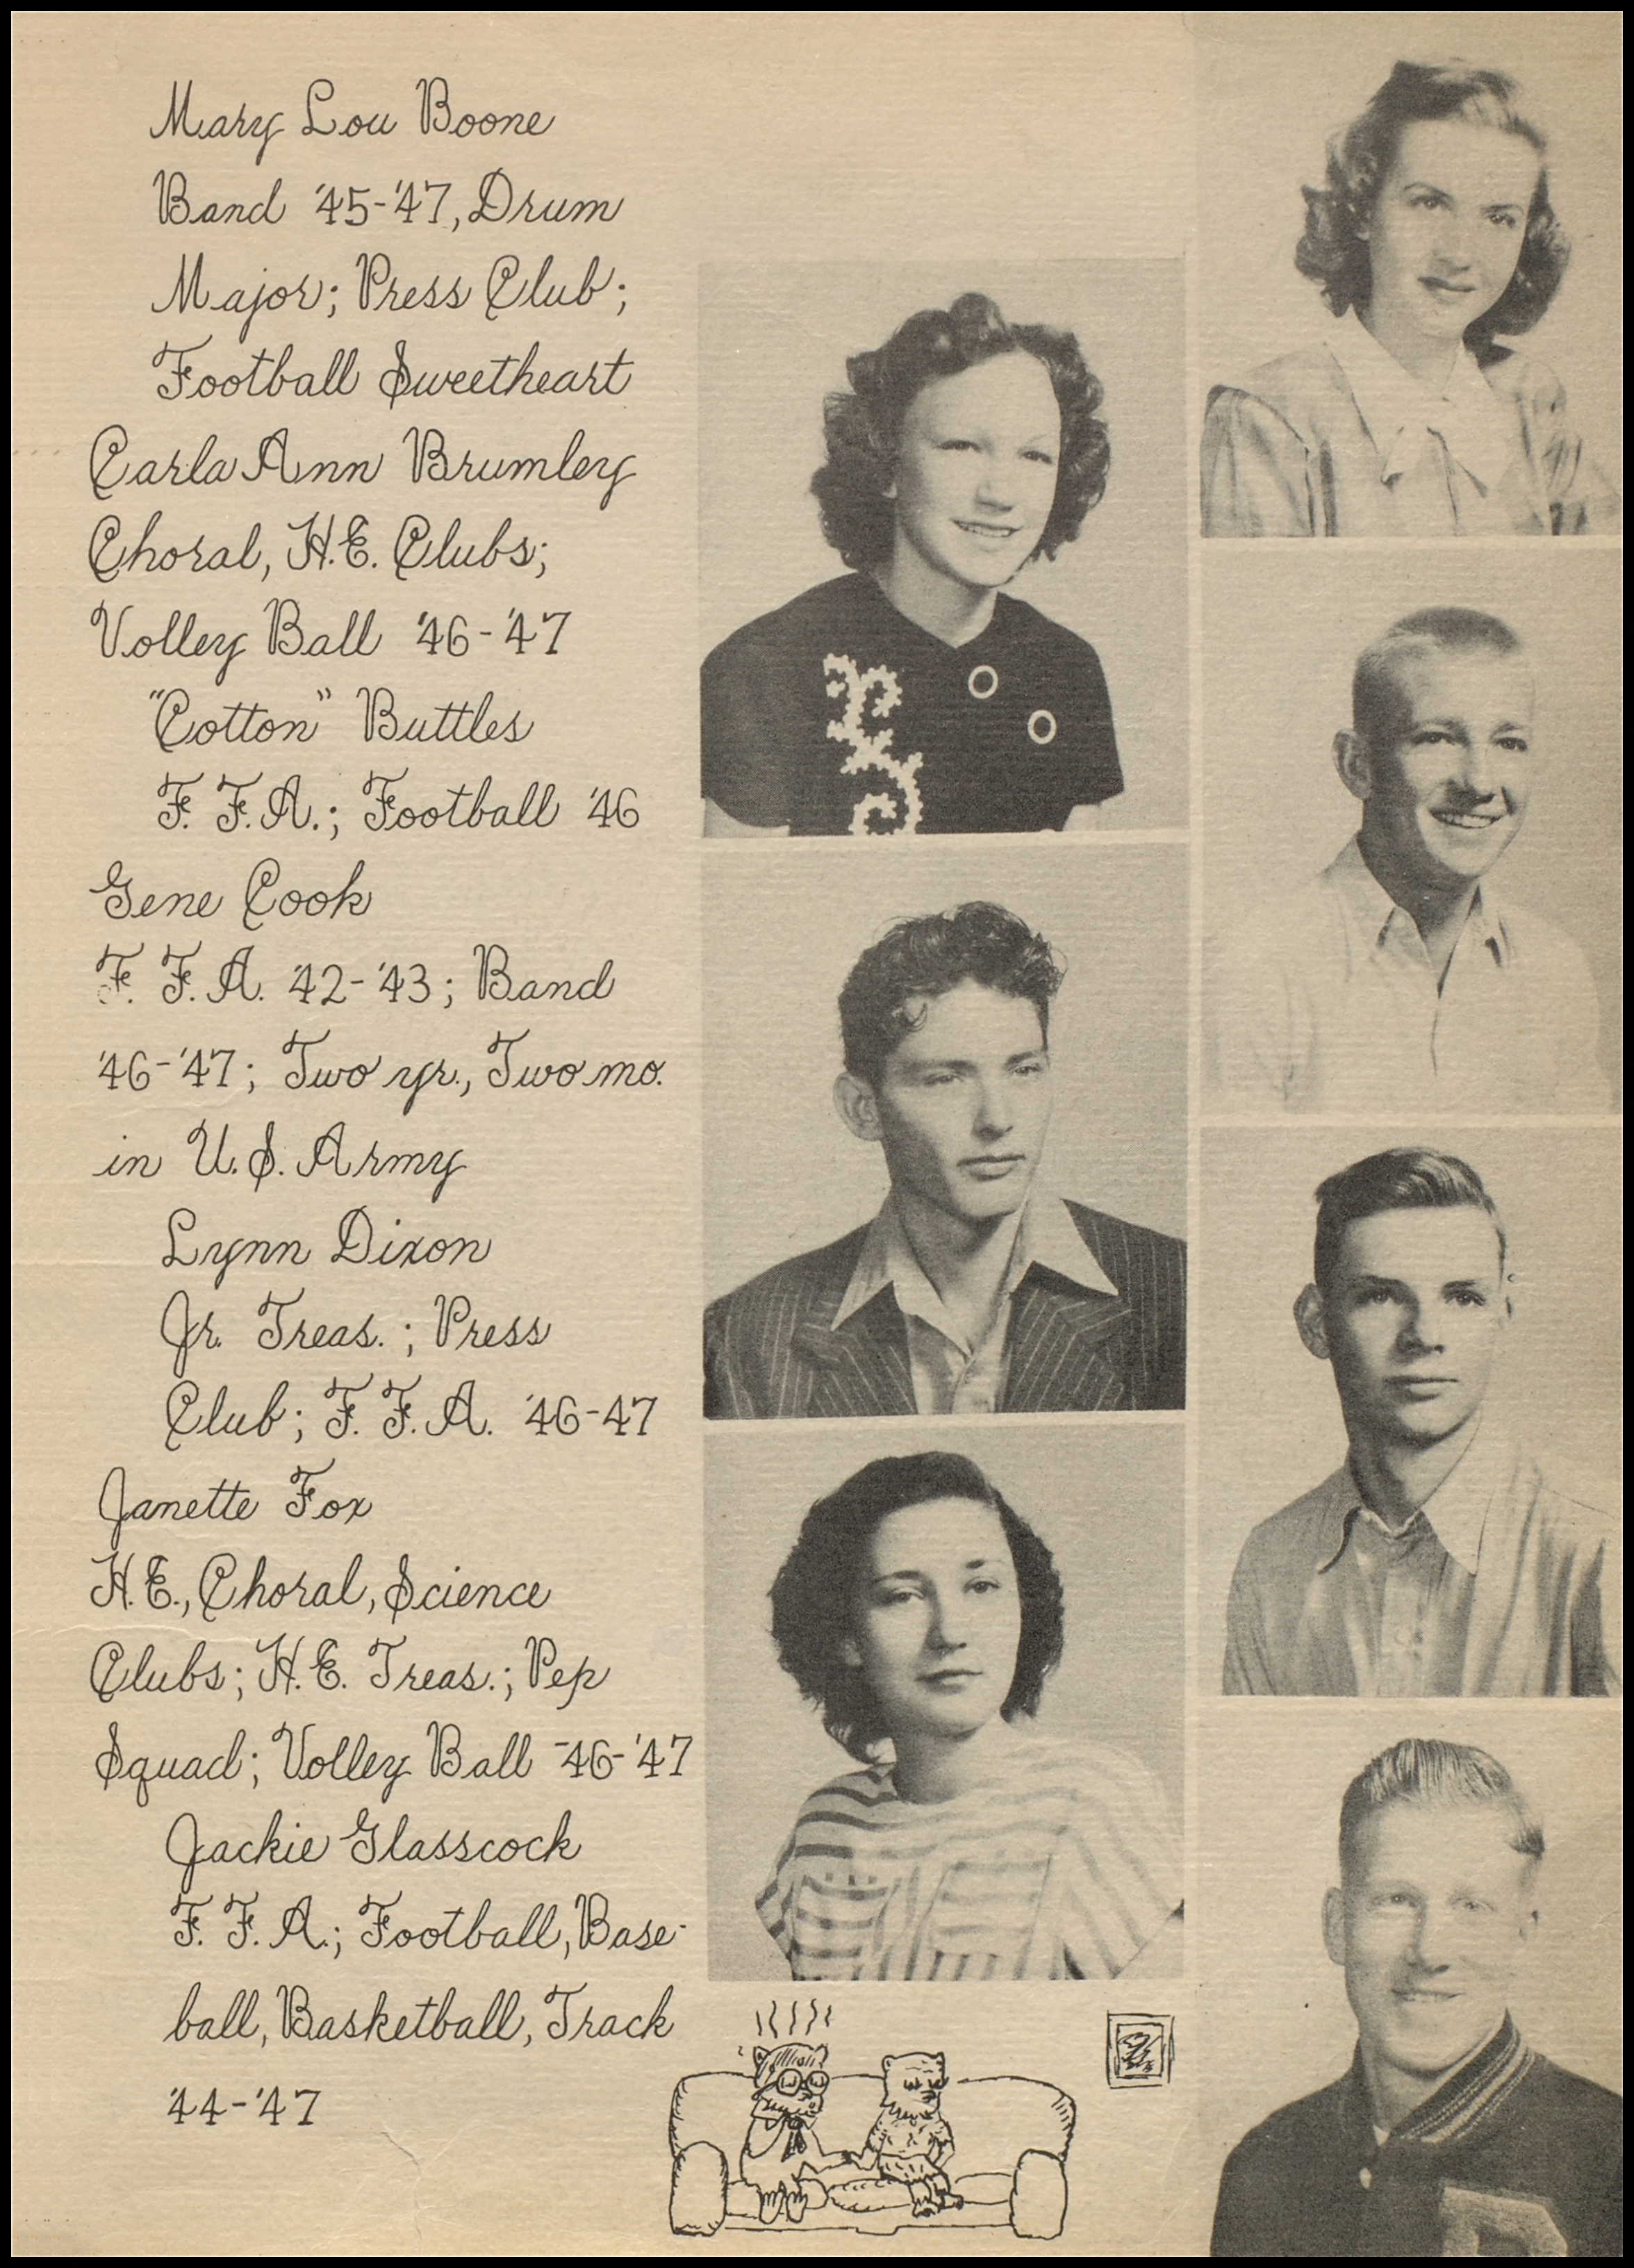 Mary Lou Boone
Band '45-'47, Drum
Major; Press Club;
Football Sweetheart
Carla Ann Brumley
Choral, H.E. Clubs;
Volley Ball '46-'47
"Cotton" Buttles
F. F. A.; Football '46
Gene Cook
F. F. A. '42-'43; Band
'46-'47; Two yr., Two mo.
in U. S. Army
Lynn Dixon
Jr. Treas. ; Press
Club; F. F. A. '46-47
Janette Fox
H. E., Choral, Science
Clubs; H. E. Treas.; Pep
Squad; Volley Ball '46-'47
Jackie Glasscock
F. F. A.; Football, Base-
ball, Basketball, Track
'44-'47